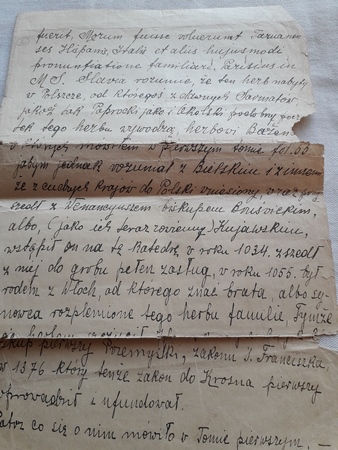 fuerit, Morum fuisse voluerunt Tarvano-
ses Hispani, Itali et aliis hujusmodi
pronuntiatione familiari, Parisius in
M S. Slavia rozumie, że ten herb nabyty
w Polszce, od któregoś z dawnych Sarmatów,
jakoż tak Paprocki jako i Okolski podobny począ-
tek tego herbu wywodzą, herbowi Bażen
o których mówiłem w pierwszym tomie fol. 55
jabym jednak rozumiał z Bielskim i z innymi
że z cudzych krajów do Polski wniesiony, wraz przy
szedł z Wenancyuszem biskupem
albo, (jako ich teraz zowiemy) Kujawskim,
wstąpił on na tę Katedrę, w roku 1034. zszedł
z niej do grobu pełen zasług, w roku 1055. był
rodem z Włoch, od którego znać brata, albo sy-
nowca rozplenione tego herbu familie, Tymże
biskup pierwszy Przemyślki, zakonu S. Franciszka,
w 1376 który tenże zakon do Krosna pierwszy
wprowadził i ufundował.
Patrz co się o nim mówiło w Tomie pierwszym. —